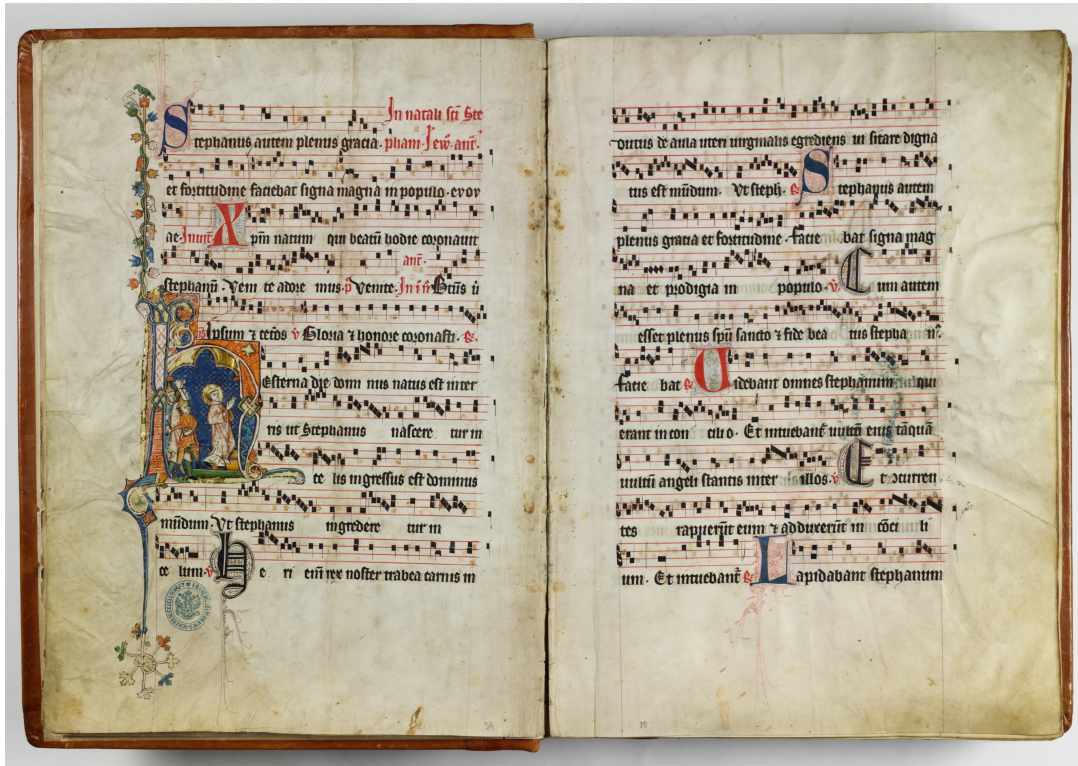 In natali sci Ste
Stephanus autem plenus gracia. pham. Jew. ant.
et fortitudine faciebat signa magna in populo. evov
ae. Invit. Xpm natum qui beatu hodie coronavit
ant.
stephanu. Venite adore mus. p Venite. In i n
Ipsum z v Gloria z honore coronasti. R.
Hesterna die domi nus natus est in ter
ris ut Stephanus nascere tur in
ce lis ingressus est dominus
mudum. Vt stephanus ingredere tur in
ce lum. v He ri eni rex noster trabea carnis in
dutus de aula uteri virginalis egrediens vi sitare digna
tus est mudum. Vt steph. R Stephanus autem
plenus gratia et fortitudine. facie bat signa mag
na et prodigia in populo. v Cum autem
esset plenus spu sancto z fide bea tus stepha n9.
facie bat R Videbant omnes stephanum qui
erant in con cilio. Et intuebant vultu eius taqua
vultu angeli stantis inter illos. v Et ocurren
tes rapuerut eum z adduxerut in coci li
um. Et intuebant R Lapidabant stephanum